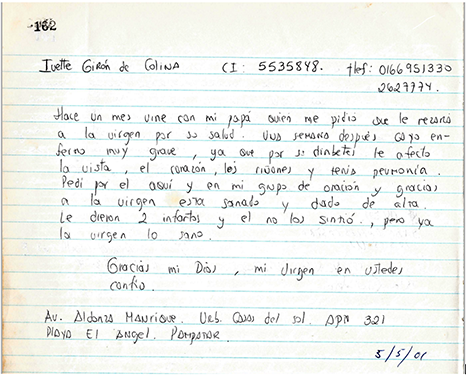 162
Ivette Girón de Colina CI: 5535848. tlef: 0166951330
2627774.
Hace un mes vine con mi papá quien me pidió que le rezara
a la virgen por su salud. Una semana después cayo en-
fermo muy grave, ya que por su diabetes le afecto
la vista, el corazón, los riñones y tenia peumonía.
Pedi por el aquí y en mi grupo de oración y gracias
a la virgen esta sanado y dado de alta.
Le dieron 2 infartos y el no los sintió, pero ya
la virgen lo sano.
Gracias mi Dios, mi virgen en ustedes
confio.
Av. Aldonza Manrique. Urb. Casas del sol. APTO 321
Playa El Angel. Pampatar.
5/5/01